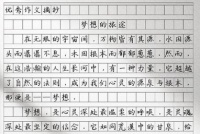 优秀作文摘抄
梦想的旅途
在无垠的宇宙间,万物皆有其源,水因源
头而蕴蕴不息,木因根本而郁郁葱葱。然而,
在这浩瀚的人生长河中,有一种力量,它超越
了自然的法则,成为我们心灵的源泉与根本,
那便是——梦想。
梦想,是心灵深处最温柔的呼唤,是灵魂
深处最坚定的信念。它如同荒漠中的甘泉,给